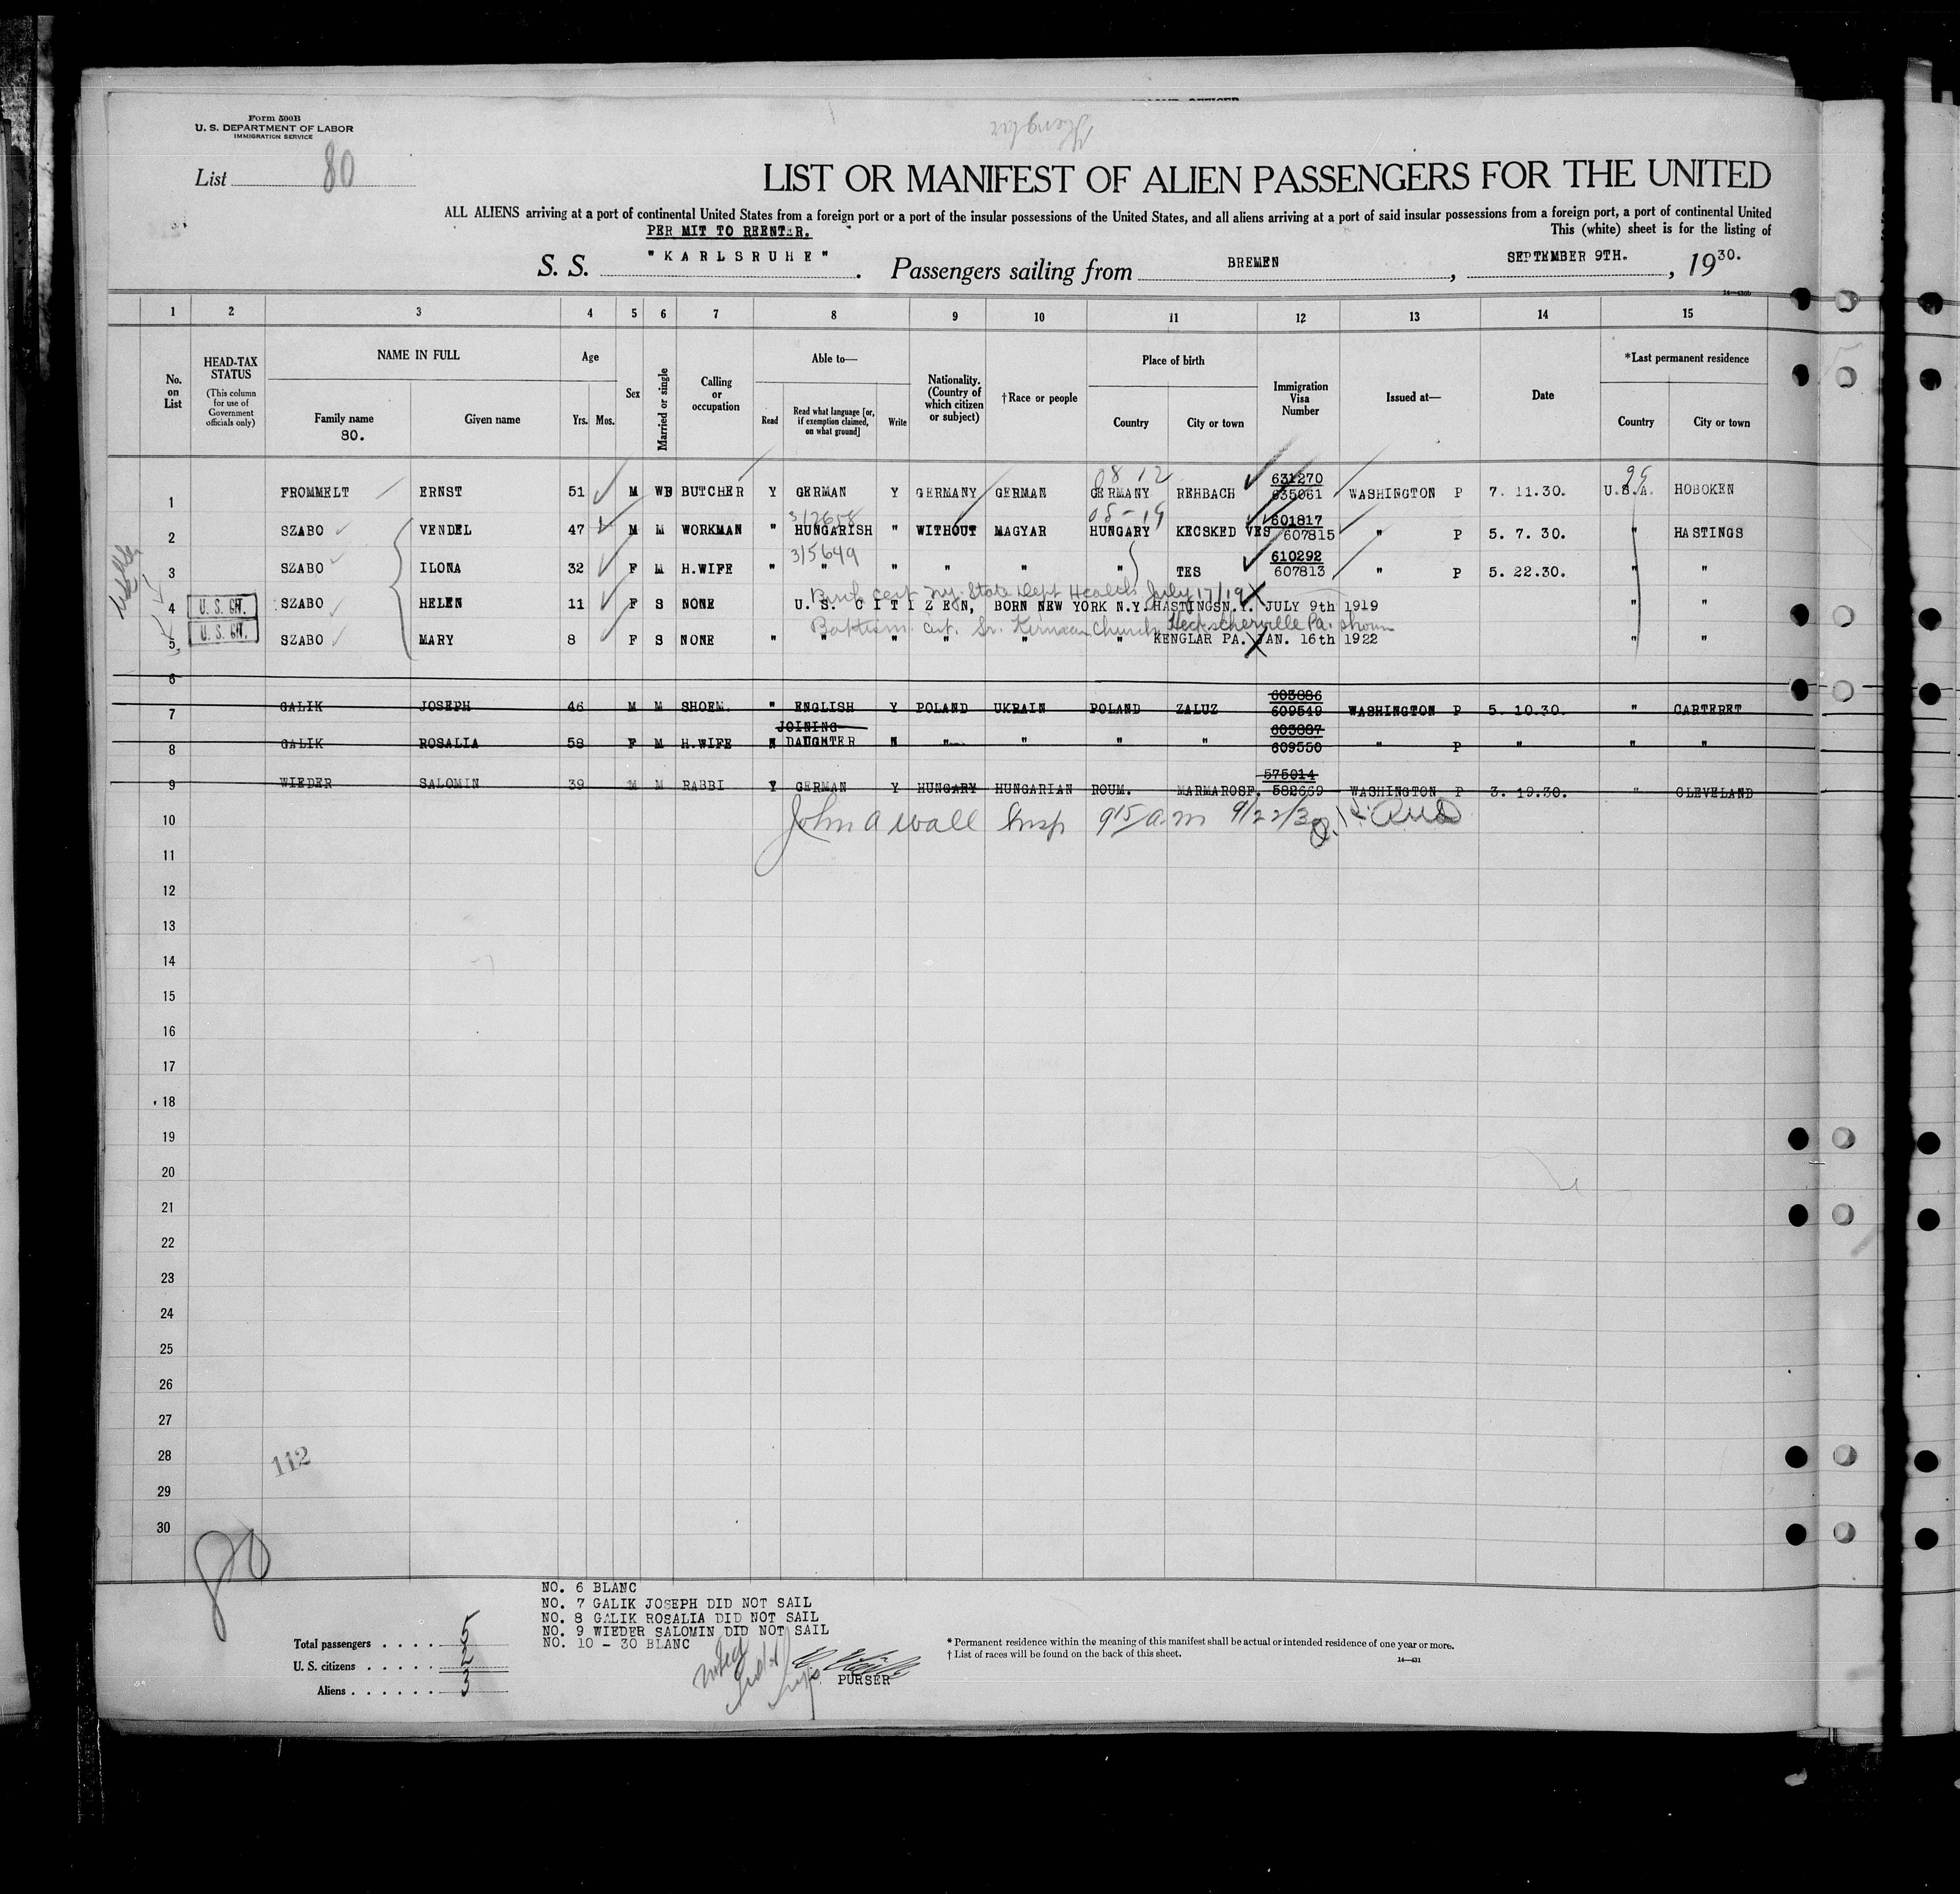 Form 500B
U. S. DEPARTMENT OF LABOR
IMMIGRATION SERVICE
List 80
LIST OR MANIFEST OF ALIEN PASSENGERS FOR THE UNITED
ALL ALIENS arriving at a port of continental United States from a foreign port or a port of the insular possessions of the United States, and all aliens arriving at a port of said insular possessions from a foreign port, a port of continental United
PER MIT TO REENTER. This (white) sheet is for the listing of
S. S. "KARLSRUHE". Passengers sailing from BREMEN, SEPTEMBER 9TH., 1930.
1 2 3 4 5 6 7 8 9 10 11 12 13 14 15
No. on List
HEAD-TAX STATUS
(This column for use of Government officials only)
NAME IN FULL
Family name
80.
Given name
Age
Yrs. Mos.
Sex
Married or single
Calling or occupation
Able to—
Read
Read what language [or, if exemption claimed, on what ground]
Write
Nationality. (Country of which citizen or subject)
†Race or people
Place of birth
Country
City or town
Immigration Visa Number
Issued at—
Date
*Last permanent residence
Country
City or town
08 12 631270 95
1 FROMMELT ERNST 51 M WD BUTCHER Y GERMAN Y GERMANY GERMAN GERMANY REHBACH 635061 WASHINGTON P 7. 11.30. U.S.A. HOBOKEN
312658 08-19 601817
2 SZABO VENDEL 47 M M WORKMAN " HUNGARISH " WITHOUT MAGYAR HUNGARY KECSKED VES 607815 " P 5. 7. 30. " HASTINGS
315649 610292
3 SZABO ILONA 32 F M H.WIFE " " " " " " TES 607813 " P 5. 22.30. " "
Birth cert N.Y. State Dept Health July 17/19
4 U. S. CIT. SZABO HELEN 11 F S NONE U.S. CITIZEN, BORN NEW YORK N.Y. HASTINGS N.Y. JULY 9th 1919 " "
Baptism cert. St. Kirnan Church Heckscherville Pa. shown
5 U. S. CIT. SZABO MARY 8 F S NONE " " " " " " KENGLAR PA. JAN. 16th 1922 " "
6
603886
7 GALIK JOSEPH 46 M M SHOEM. " ENGLISH Y POLAND UKRAIN POLAND ZALUZ 609549 WASHINGTON P 5. 10.30. " CARTERET
JOINING 603887
8 GALIK ROSALIA 58 F M H.WIFE N DAUGHTER N " " " " 609550 " P " " "
575014
9 WIEDER SALOMIN 39 M M RABBI Y GERMAN Y HUNGARY HUNGARIAN ROUM. MARMAROSF. 582669 WASHINGTON P 3. 19.30. " CLEVELAND
10 John A Wall Insp 9 15 am 9/22/30
11
12
13
14
15
16
17
18
19
20
21
22
23
24
25
26
27
28
29
30
112
80
NO. 6 BLANC
NO. 7 GALIK JOSEPH DID NOT SAIL
NO. 8 GALIK ROSALIA DID NOT SAIL
NO. 9 WIEDER SALOMIN DID NOT SAIL
NO. 10 - 30 BLANC
Total passengers . . . . 5
U. S. citizens . . . . . 2
Aliens . . . . . . 3
PURSER
* Permanent residence within the meaning of this manifest shall be actual or intended residence of one year or more.
† List of races will be found on the back of this sheet.
14—431